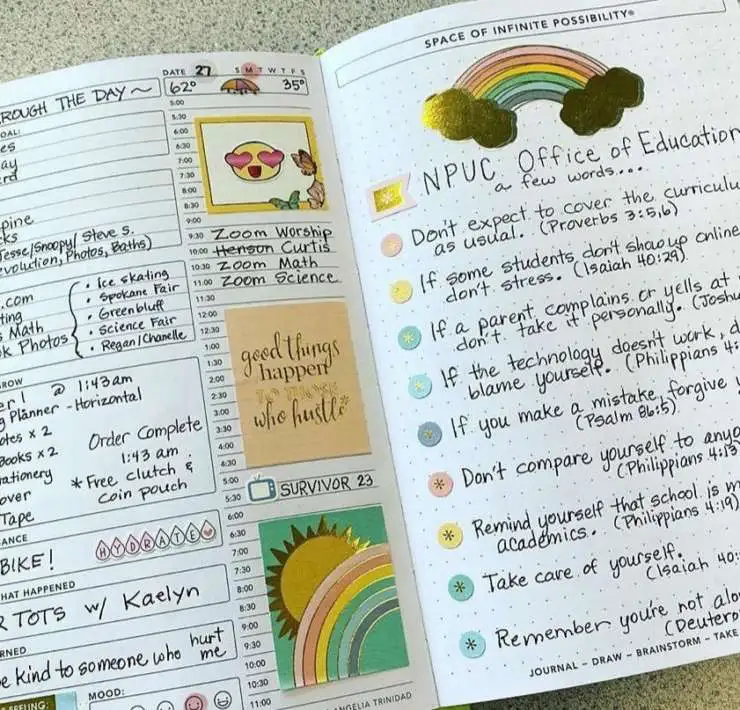 ROUGH THE DAY ~
DATE 27 S M T W T F S
62° 35°
Jesse/Snoopy/ Steve S.
Photos, Baths)
.com
Math
Photos
• Ice skating
• Spokane Fair
• Greenbluff
• Science Fair
• Regan/Chanelle
@ 1:43am
Planner - Horizontal
x 2
Books x 2
Tape
Order Complete
1:43 am
* Free clutch &
coin pouch
BIKE!
HYDRATE
HAT HAPPENED
TOTS w/ Kaelyn
kind to someone who hurt
me
FEELING:
MOOD:
5:00
5:30
6:00
6:30
7:00
7:30
8:00
8:30
9:00
9:30 Zoom Worship
10:00 Henson Curtis
10:30 Zoom Math
11:00 Zoom Science
11:30
12:00
12:30
1:00
1:30
2:00
2:30
3:00
3:30
4:00
4:30
good things
happen
TO THOSE
who hustle*
5:00
5:30 SURVIVOR 23
6:00
6:30
7:00
7:30
8:00
8:30
9:00
9:30
10:00
10:30
11:00
ANGELIA TRINIDAD
SPACE OF INFINITE POSSIBILITY®
NPUC Office of Education
a few words...
Don't expect to cover the
as usual. (Proverbs 3:5,6)
If some students don't show up online
don't stress. (Isaiah 40:29)
If a parent complains or yells at
don't take it personally.
If the technology doesn't work,
blame yourself. (Philippians 4:
If you make a mistake, forgive
(Psalm 86:5)
Don't compare yourself to
(Philippians 4:13
Remind yourself that school is
academics. (Philippians 4:19)
Take care of yourself.
(Isaiah 40:
Remember you're not
JOURNAL ~ DRAW ~ BRAINSTORM ~ TAKE